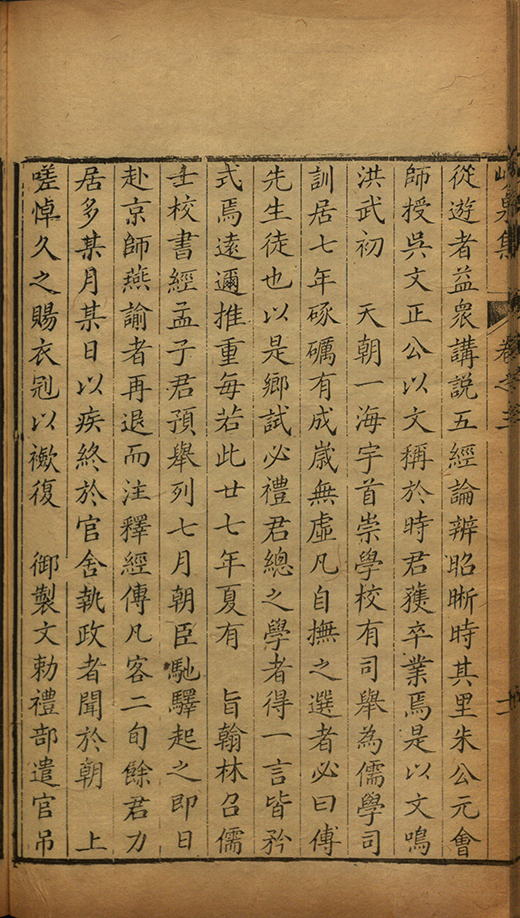 峴泉集 卷之三
從遊者益衆講説五經論辨昭晰時其里朱公元會
師授吳文正公以文稱於時君獲卒業焉是以文鳴
洪武初　天朝一海宇首崇學校有司舉為儒學司
訓居七年琢礪有成嵗無虛凡自撫之選者必曰傅
先生徒也以是鄉試必禮君總之學者得一言皆矜
式焉遠邇推重每若此廿七年夏有　旨翰林召儒
士校書經孟子君預舉列七月朝臣馳驛起之即日
赴京師燕諭者再退而注釋經傳凡客二旬餘君力
居多某月某日以疾終於官舍執政者聞於朝　上
嗟悼久之賜衣冠以襚復　御製文勅禮部遣官吊